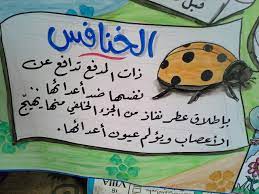 قبل
الخنافس
ذات المدفع تدافع عن
نفسها ضد أعدائها
بإطلاق عطر نفاذ من الجزء الخلفي منها يهيّج
الأعصاب ويؤلم عيون أعدائها.
VIIIA
18